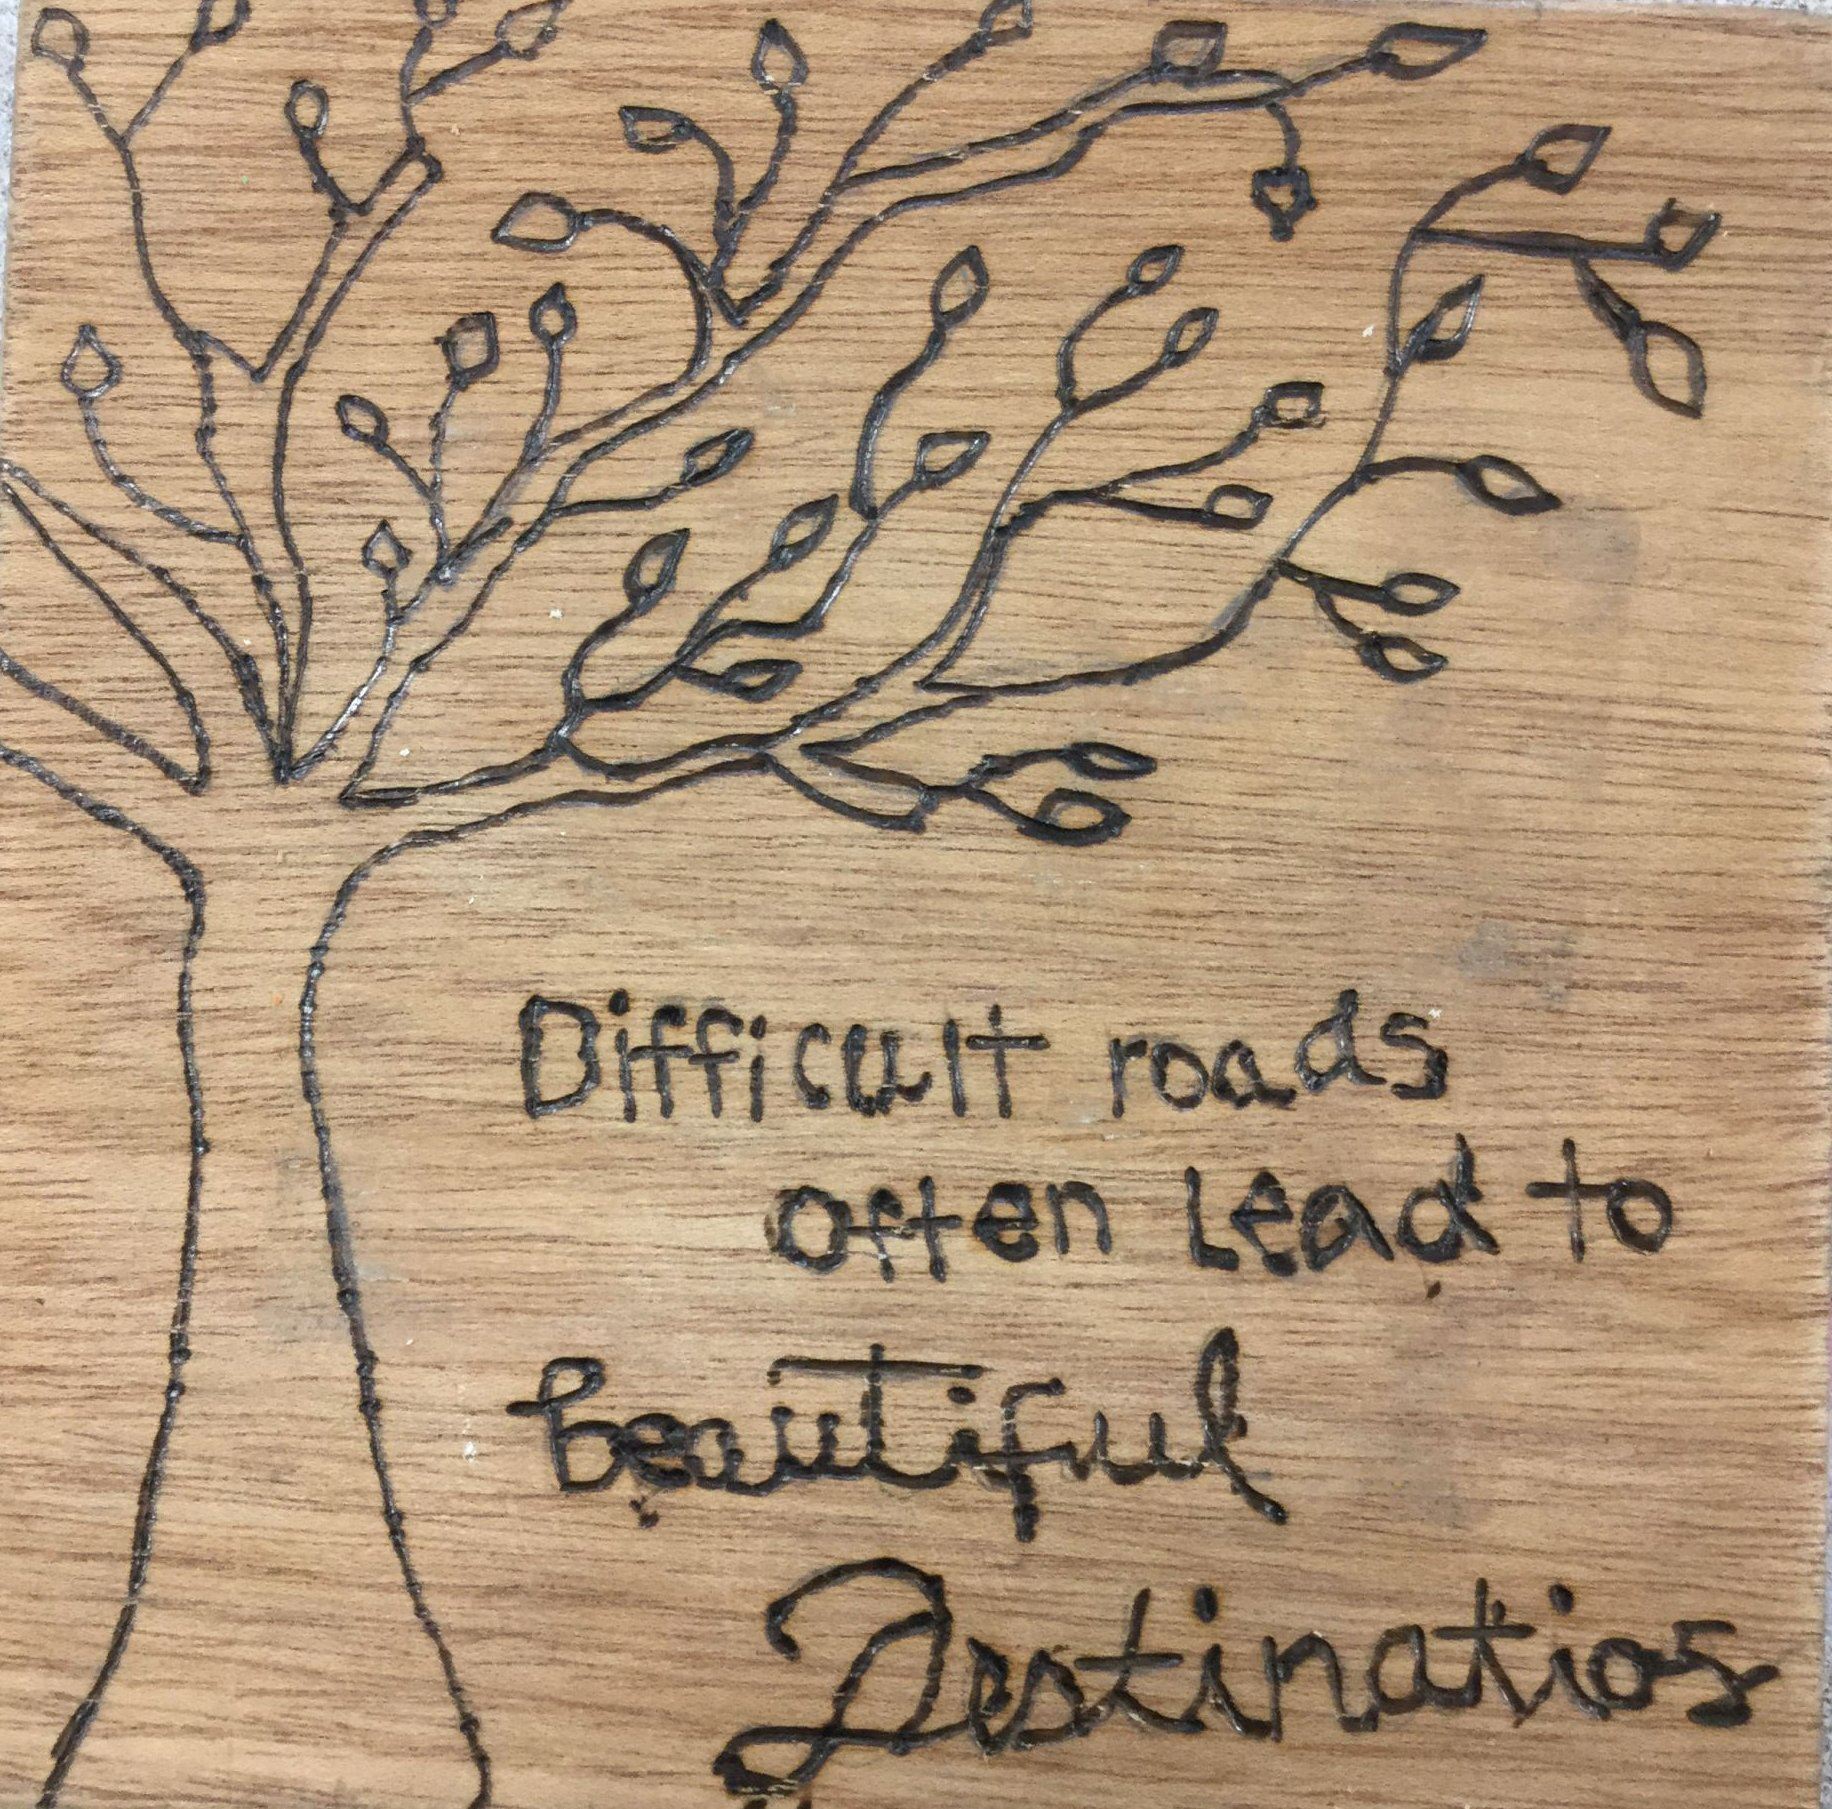 Difficult roads
often Lead to
beautiful
Destinatios